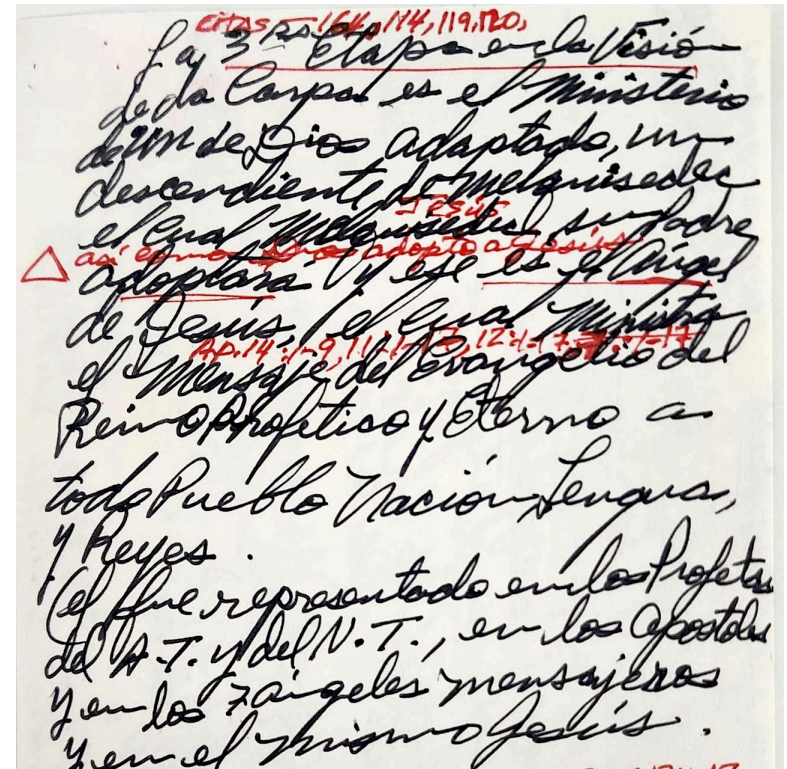 citas - 164, 114, 119, 120,
La 3ra Etapa en la Visión
de la Carpa es el Ministerio
de un de Dios adaptado, un
descendiente de Melquisedec
Jesús
el cual Melquisedec, su Padre
así como adopto a Jesús
adoptará y ese es el Ángel
de Jesús, el cual Ministra
AP. 14:1-9, 11:1-17, 12:1-17
el Mensaje del Evangelio del
Reino Profético y Eterno a
todo Pueblo Nación, Lengua,
y Reyes.
(el fue representado en los Profetas
del A.T. y del N.T., en los apostoles
y en los 7 ángeles mensajeros
y en el mismo Jesús.